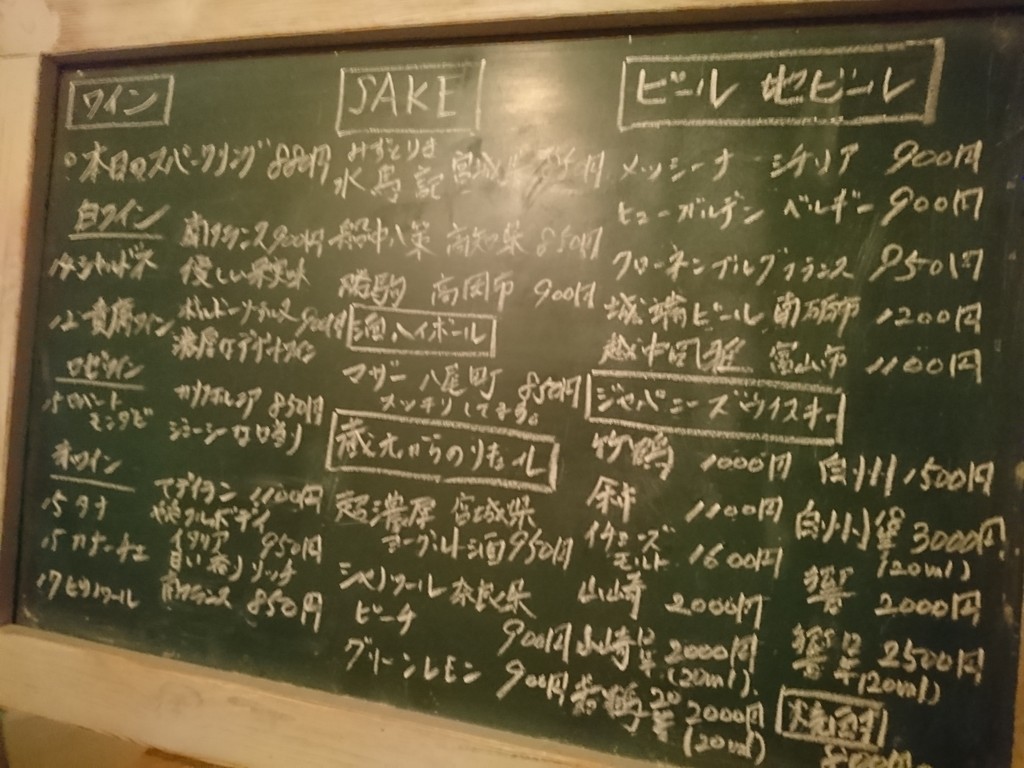 ワイン
本日のスパークリング 880円
白ワイン
南フランス 900円
優しい果実味
貴腐ワイン
900円
濃厚な
ロゼワイン
カリフォルニア 850円
ロバート
モンダビ
赤ワイン
15 タナ
マディラン 1100円
フルボディ
イタリア 950円
甘い香り リッチ
17 ピノノワール
南フランス 850円
SAKE
みずとりき
水鳥記 宮城県
円
船中八策 高知県 850円
勝駒 高岡市 900円
酒ハイボール
マザー 八尾町 850円
スッキリしてます。
蔵元からのリキュール
超濃厚 宮城県
ヨーグルト酒 950円
シャルノワール 奈良県
ピーチ
900円
グリーンレモン 900円
ビール 地ビール
メッシーナ シチリア 900円
ヒューガルデン ベルギー 900円
クローネンブルグ フランス 950円
城端ビール 南砺市 1200円
越中風雅 富山市 1100円
ジャパニーズウイスキー
竹鶴 1000円
余市 1100円
イチローズ
モルト 1600円
山崎 2000円
山崎12年 2000円
(20ml)
若鶴20年 2000円
(20ml)
白州 1500円
白州 3000円
(20ml)
響 2000円
響12年 2500円
(20ml)
焼酎
800円